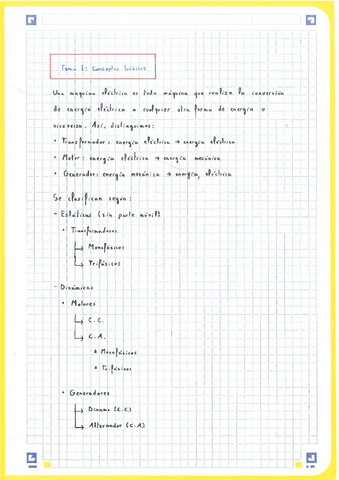 Tema 1: Conceptos básicos
Una maquina eléctrica es toda máquina que realiza la conversión
de energía eléctrica a cualquier otra forma de energía o
viceversa. Así, distinguimos:
• Transformador: energía eléctrica → energía eléctrica
• Motor: energía eléctrica → energía mecánica
• Generador: energía mecánica → energía eléctrica
Se clasifican según:
- Estáticas (sin parte móvil)
• Transformadores
↳ Monofásicos
↳ Trifásicos
- Dinámicas
• Motores
↳ C.C.
↳ C.A.
• Monofásicos
• Trifásicos
• Generadores
↳ Dinamo (C.C)
↳ Alternador (C.A)